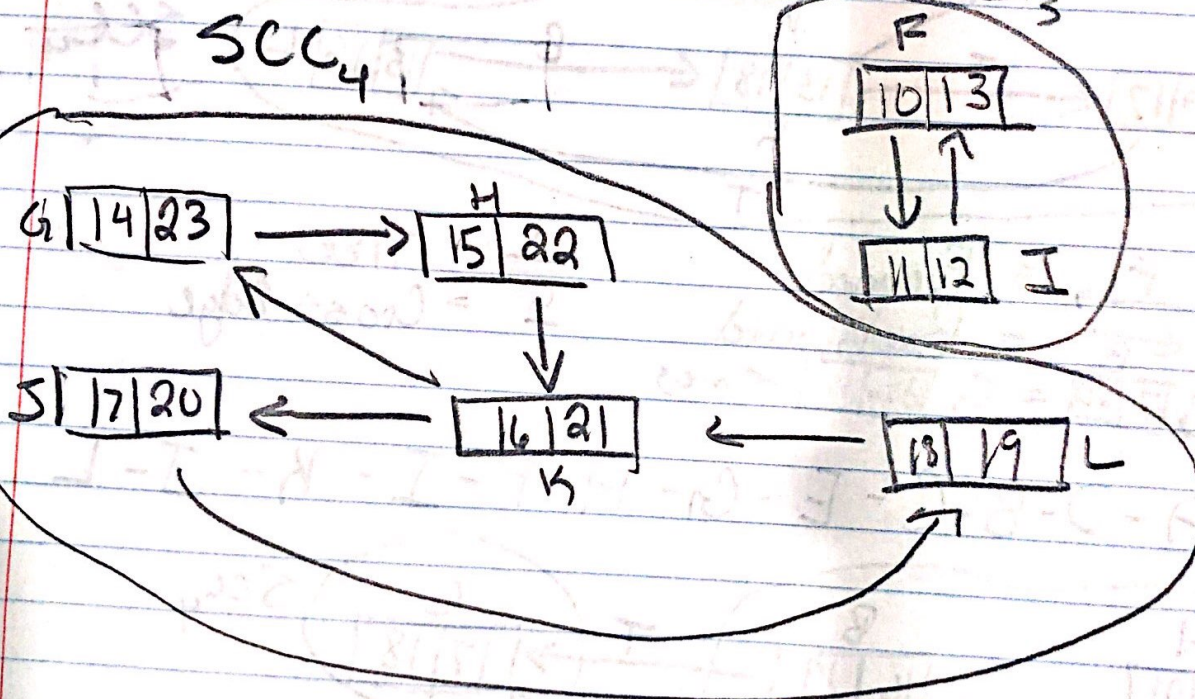 SCC4
3
F
10 13
11 12 I
G 14 23
H
15 22
J 17 20
16 21
K
18 19 L